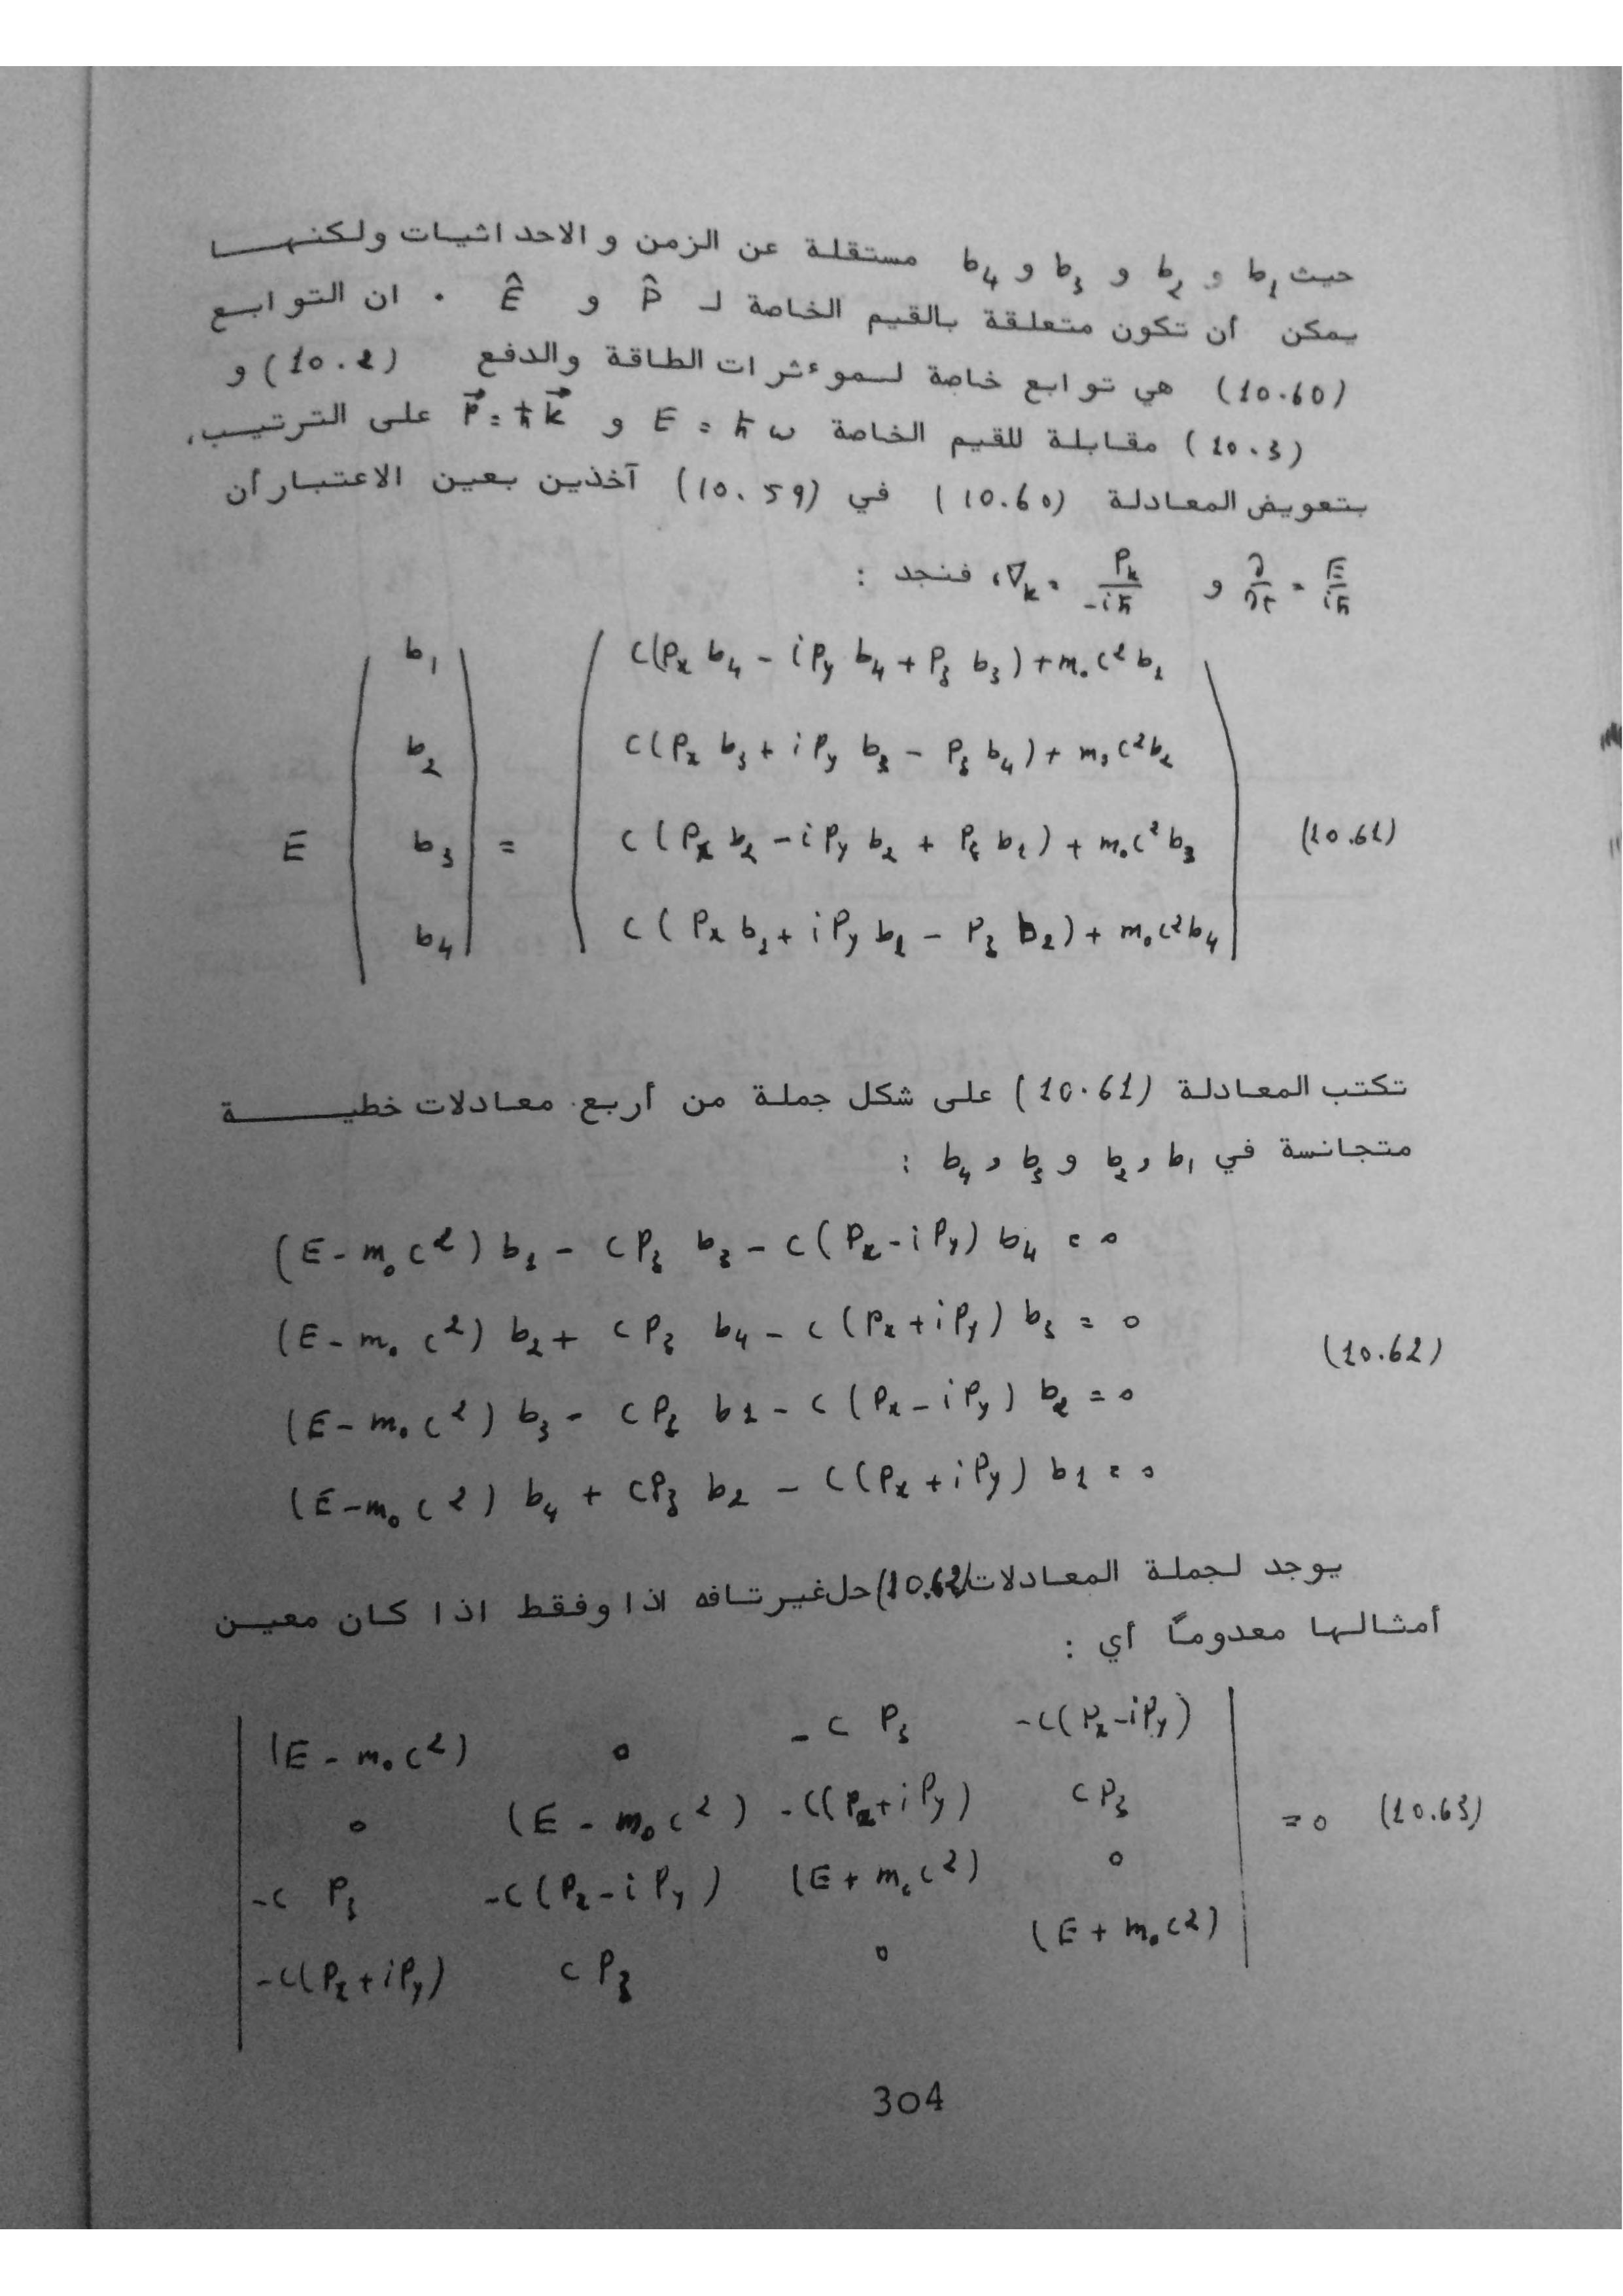 حيث b₁ و b₂ و b₃ و b₄ مستقلة عن الزمن و الاحداثيات ولكنهـــا
يمكن أن تكون متعلقة بالقيم الخاصة لـ P̂ و Ê . ان التوابـع
(10.60) هي توابع خاصة لـمؤثرات الطاقة والدفع (10.2) و
(10.3) مقابلة للقيم الخاصة E = ħω و P⃗ = ħk⃗ على الترتيـب،
بتعويض المعادلة (10.60) في (10.59) آخذين بعين الاعتبار أن
∂/∂t = E/iħ و ∇ₖ = Pₖ/-iħ ، فنجد :
b₁ C(Pₓ b₄ - i P_y b₄ + P_z b₃) + m₀c² b₁
b₂ C(Pₓ b₃ + i P_y b₃ - P_z b₄) + m₀c² b₂
E b₃ = C(Pₓ b₂ - i P_y b₂ + P_z b₁) + m₀c² b₃ (10.61)
b₄ C(Pₓ b₁ + i P_y b₁ - P_z b₂) + m₀c² b₄
تكتب المعادلة (10.61) على شكل جملة من أربع معادلات خطيـــة
متجانسة في b₁ و b₂ و b₃ و b₄ :
(E - m₀c²) b₁ - cP_z b₃ - c(Pₓ - iP_y) b₄ = 0
(E - m₀c²) b₂ + cP_z b₄ - c(Pₓ + iP_y) b₃ = 0
(10.62)
(E - m₀c²) b₃ - cP_z b₁ - c(Pₓ - iP_y) b₂ = 0
(E - m₀c²) b₄ + cP_z b₂ - c(Pₓ + iP_y) b₁ = 0
يوجد لجملة المعادلات (10.62) حل غير تافه اذا وفقط اذا كان معيـن
أمثالها معدوماً أي :
(E - m₀c²) 0 -c P_z -c(Pₓ - iP_y)
0 (E - m₀c²) -c(Pₓ + iP_y) cP_z = 0 (10.63)
-c P_z -c(Pₓ - iP_y) (E + m₀c²) 0
-c(Pₓ + iP_y) cP_z 0 (E + m₀c²)
304